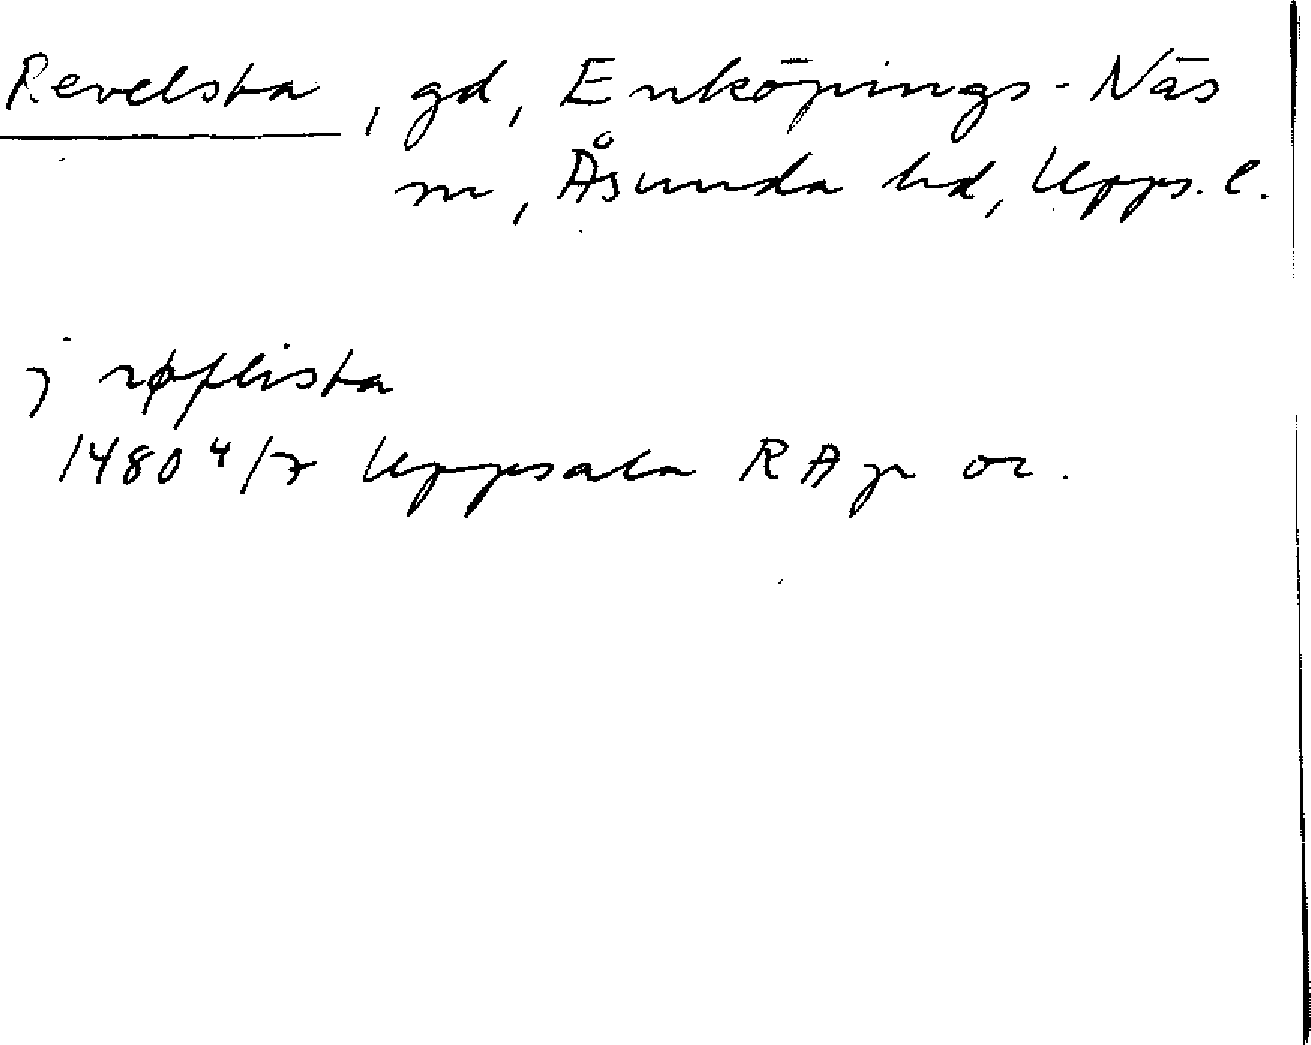 Revelsta, gd, Enköpings-Näs
sn, Åsunda hd, Upps. l.
j røflista
1480 4/7 Uppsala RAp or.